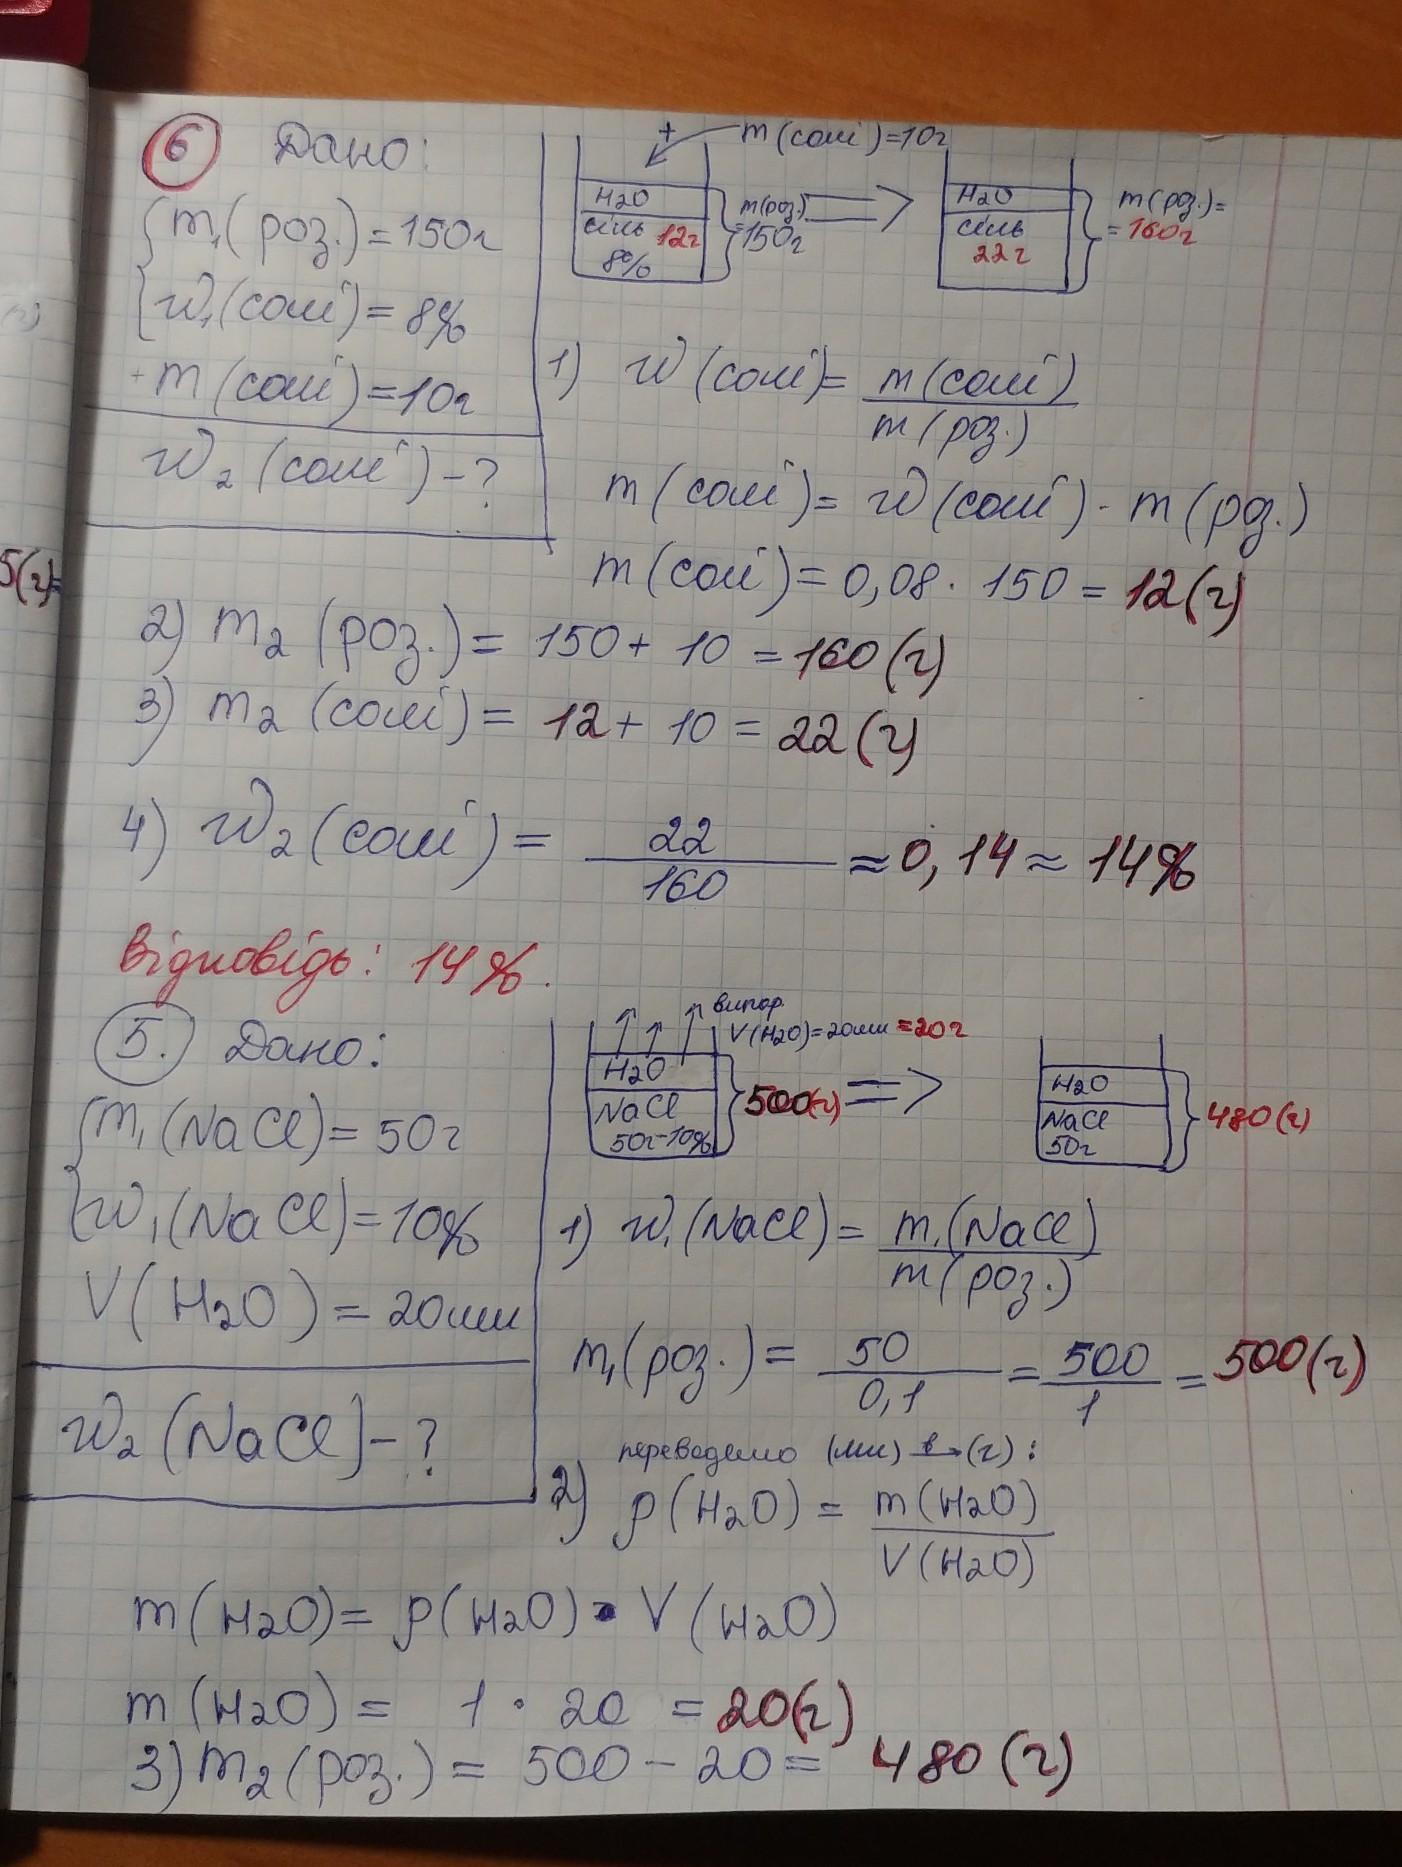 6 Дано:
m₁(роз.)=150г
w₁(солі)=8%
+m(солі)=10г
w₂(солі)-?
+ m(солі)=10г
H₂O
сіль 12г
8%
m(роз.)
=150г
H₂O
сіль
22г
m(роз.)=
=160г
1) w(солі)= m(солі)
m(роз.)
m(солі)= w(солі)·m(роз.)
m(солі)=0,08·150=12(г)
2) m₂(роз.)=150+10=160(г)
3) m₂(солі)=12+10=22(г)
4) w₂(солі)= 22
160
≈0,14≈14%
Відповідь: 14%.
5(г)=
5. Дано:
m₁(NaCl)=50г
w₁(NaCl)=10%
V(H₂O)=20мл
w₂(NaCl)-?
випар.
V(H₂O)=20мл=20г
H₂O
NaCl
50г-10%
500(г)
H₂O
NaCl
50г
480(г)
1) w₁(NaCl)= m₁(NaCl)
m(роз.)
m₁(роз.)= 50
0,1
= 500
1
=500(г)
переведемо (мл) в (г):
2) ρ(H₂O)= m(H₂O)
V(H₂O)
m(H₂O)=ρ(H₂O)·V(H₂O)
m(H₂O)= 1·20=20(г)
3) m₂(роз.)=500-20=480(г)